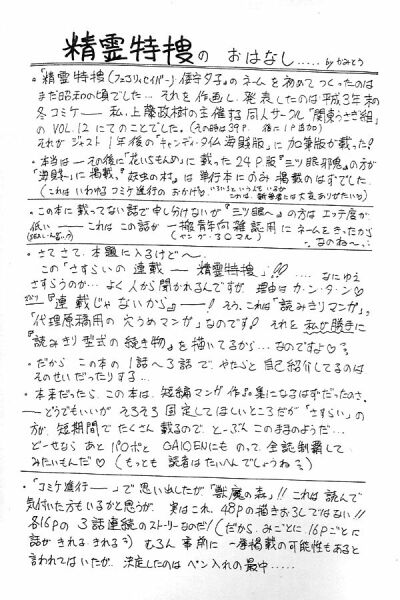 精霊特捜の おはなし..... by かみとう
・「精霊特捜(フェアリィ・セイバー) 便守夕子」のネームを初めてつくったのは
まだ昭和の頃でした… それを作画し、発表したのは平成3年末の
冬コミケ── 私、上藤政樹の主催する同人サークル「関東うさぎ組」
のVOL.12にてのことでした。(その時は39P. 後に1P追加)
それが ジャスト1年後の「キャンディ・タイム海賊版」に 加筆版が載った!
・本当は──その後に「花いちもんめ」に載った24P版「三ツ眼邪鬼」の方が
「海賊」に掲載。「妖虫の村」は単行本にのみ掲載のはずでした。
(これは いわゆる コミケ進行のおかげ
・この本に載ってない話で申し分けないが「三ツ眼〜」の方は エッチ度が
低い── これは この話が 一般青年向雑誌用にネームをきったから
なのね〜。
・さてさて、本題に入るけど〜、
この「さすらいの連載── 精霊特捜」!! .... なにゆえ
さすらうのか… よく人から聞かれるんですが、理由はカ・ン・タ・ン♡
『連載じゃないから』──! そう、これは「読みきりマンガ」、
「代理原稿用の穴うめマンガ」なのです! それを 私が勝手に
『読みきり型式の続き物』を描いてるから… なのですよ♡
・だから この本の1話〜3話で やたらと 自己紹介してるのは
そのせいだったりする…
・本来だったら、この本は、短編マンガ作品集になるはずだったのさ。
── どうでもいいが そろそろ 固定してほしいところだが「さすらい」の
方が、短期間で たくさん 載るので、と〜ぶん このままのようだ…
ど〜せなら あと パロポと GAIDENにも のって、全誌制覇して
みたいもんだ♡ (もっとも 読者は たいへんでしょうね?)
・「コミケ進行──」で思い出したが「獣魔の森」!! これは 読んで
気付いた方もいるかと思うが、 実は これ、48Pの描きおろしではない!!
各16Pの 3話連続のストーリーなのだ! (だから、みごとに 16Pごとに
話が きれる、きれる?) むろん 事前に 一挙掲載の可能性もあると
言われてはいたが、決定したのは ペン入れの最中.....